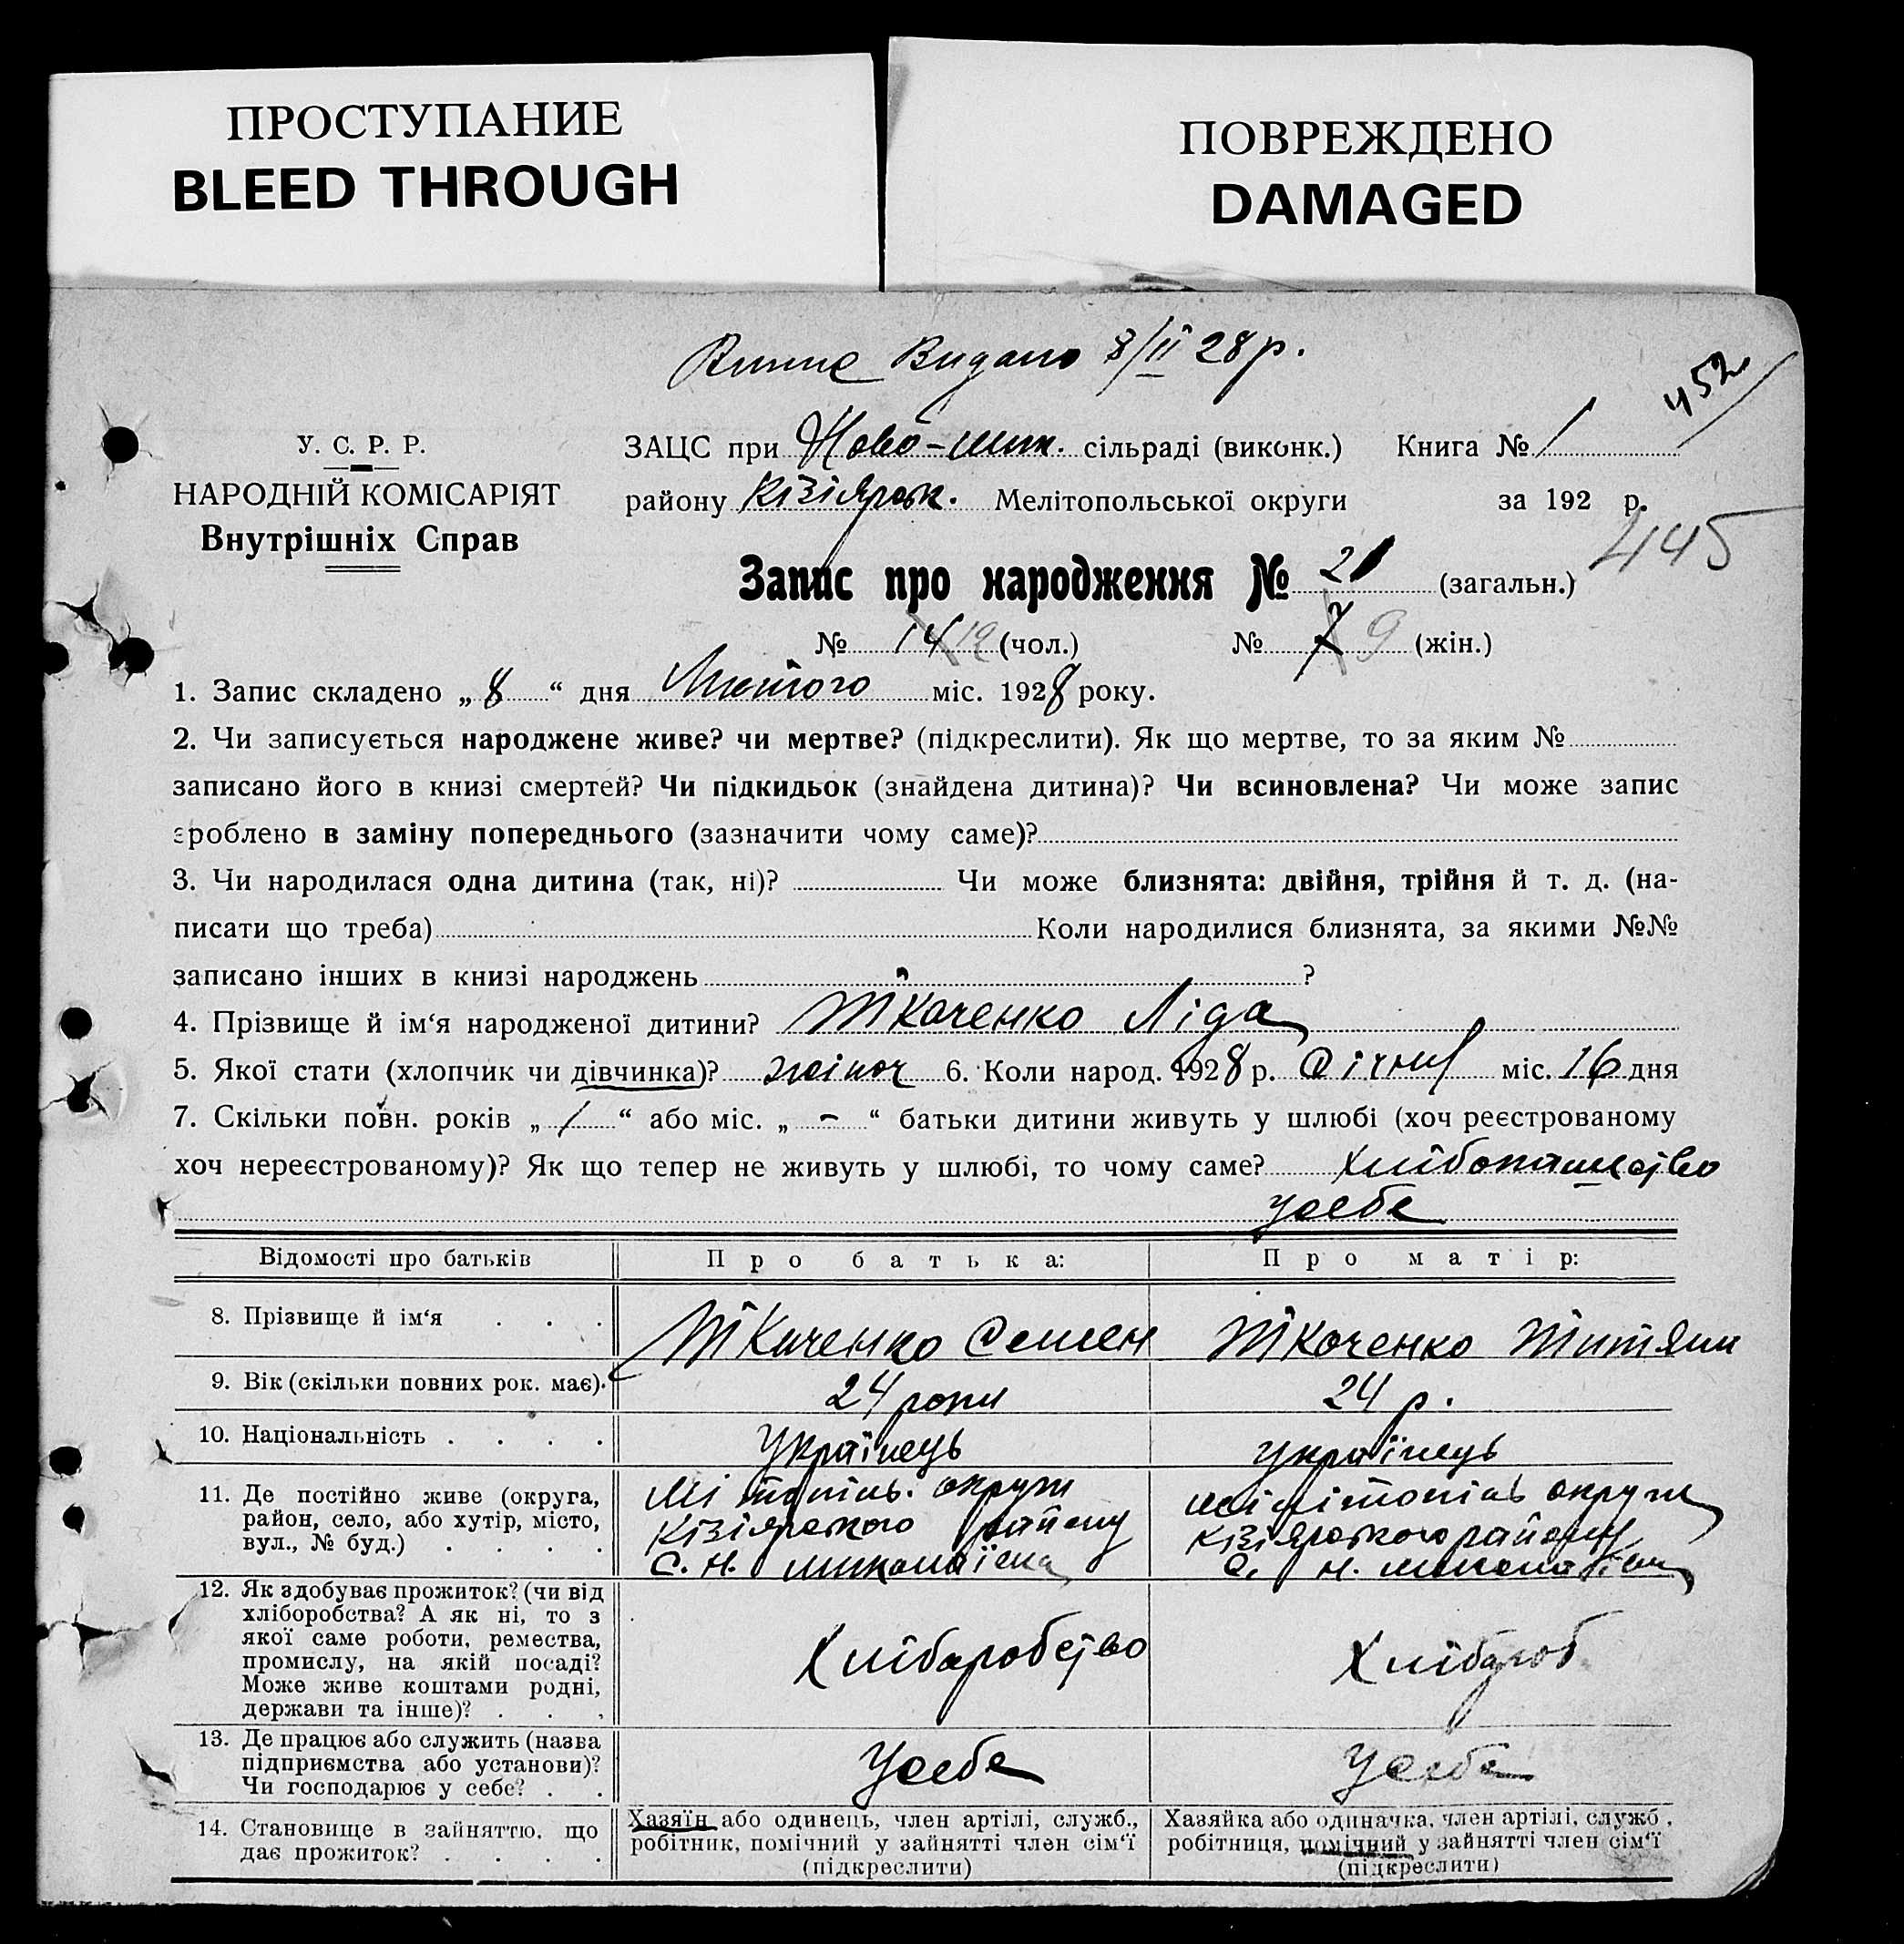 ПРОСТУПАНИЕ
BLEED THROUGH
ПОВРЕЖДЕНО
DAMAGED
Видано 8/II 28 р.
452
У. С. Р. Р.
НАРОДНІЙ КОМІСАРІЯТ
Внутрішніх Справ
ЗАЦС при Ново-мик. сільраді (виконк.) Книга № 1
району Кізіярськ. Мелітопольської округи за 192 р.
445
Запис про народження № 21 (загальн.)
№ 14 12 (чол.) № 7 9 (жін.)
1. Запис складено „ 8 “ дня Лютого міс. 1928 року.
2. Чи записується народжене живе? чи мертве? (підкреслити). Як що мертве, то за яким №
записано його в книзі смертей? Чи підкидьок (знайдена дитина)? Чи всиновлена? Чи може запис
зроблено в заміну попереднього (зазначити чому саме)?
3. Чи народилася одна дитина (так, ні)? Чи може близнята: двійня, трійня й т. д. (на-
писати що треба) Коли народилися близнята, за якими №№
записано інших в книзі народжень ?
4. Прізвище й ім‘я народженої дитини? Ткаченко Ліда
5. Якої стати (хлопчик чи дівчинка)? жіноч 6. Коли народ. 1928 р. Січня міс. 16 дня
7. Скільки повн. років „ 1 “ або міс. „ - “ батьки дитини живуть у шлюбі (хоч реєстрованому
хоч нереєстрованому)? Як що тепер не живуть у шлюбі, то чому саме? хлібопашество
усебе
Відомості про батьків
Про батька:
Про матір:
8. Прізвище й ім‘я . . .
Ткаченко Семен
Ткаченко Титяни
9. Вік (скільки повних рок. має).
24 роки
24 р.
10. Національність . . . .
Українець
українець
11. Де постійно живе (округа,
район, село, або хутір, місто,
вул., № буд.) . . . .
округи
Кізіярського району
С. Н. миколаївка
мілітопіль округи
Кізіярського району
С. Н. миколаївки
12. Як здобуває прожиток? (чи від
хліборобства? А як ні, то з
якої саме роботи, ремества,
промислу, на якій посаді?
Може живе коштами родні,
держави та інше)? . . .
Хлібаробство
Хлібароб
13. Де працює або служить (назва
підприємства або установи)?
Чи господарює у себе? . .
Усебе
Усебе
14. Становище в зайняттю, що
дає прожиток? . . . .
Хазяїн або одинець, член артілі, служб.,
робітник, помічний у зайнятті член сім‘ї
(підкреслити)
Хазяйка або одиначка, член артілі, служб.,
робітниця, помічний у зайнятті член сім‘ї
(підкреслити)